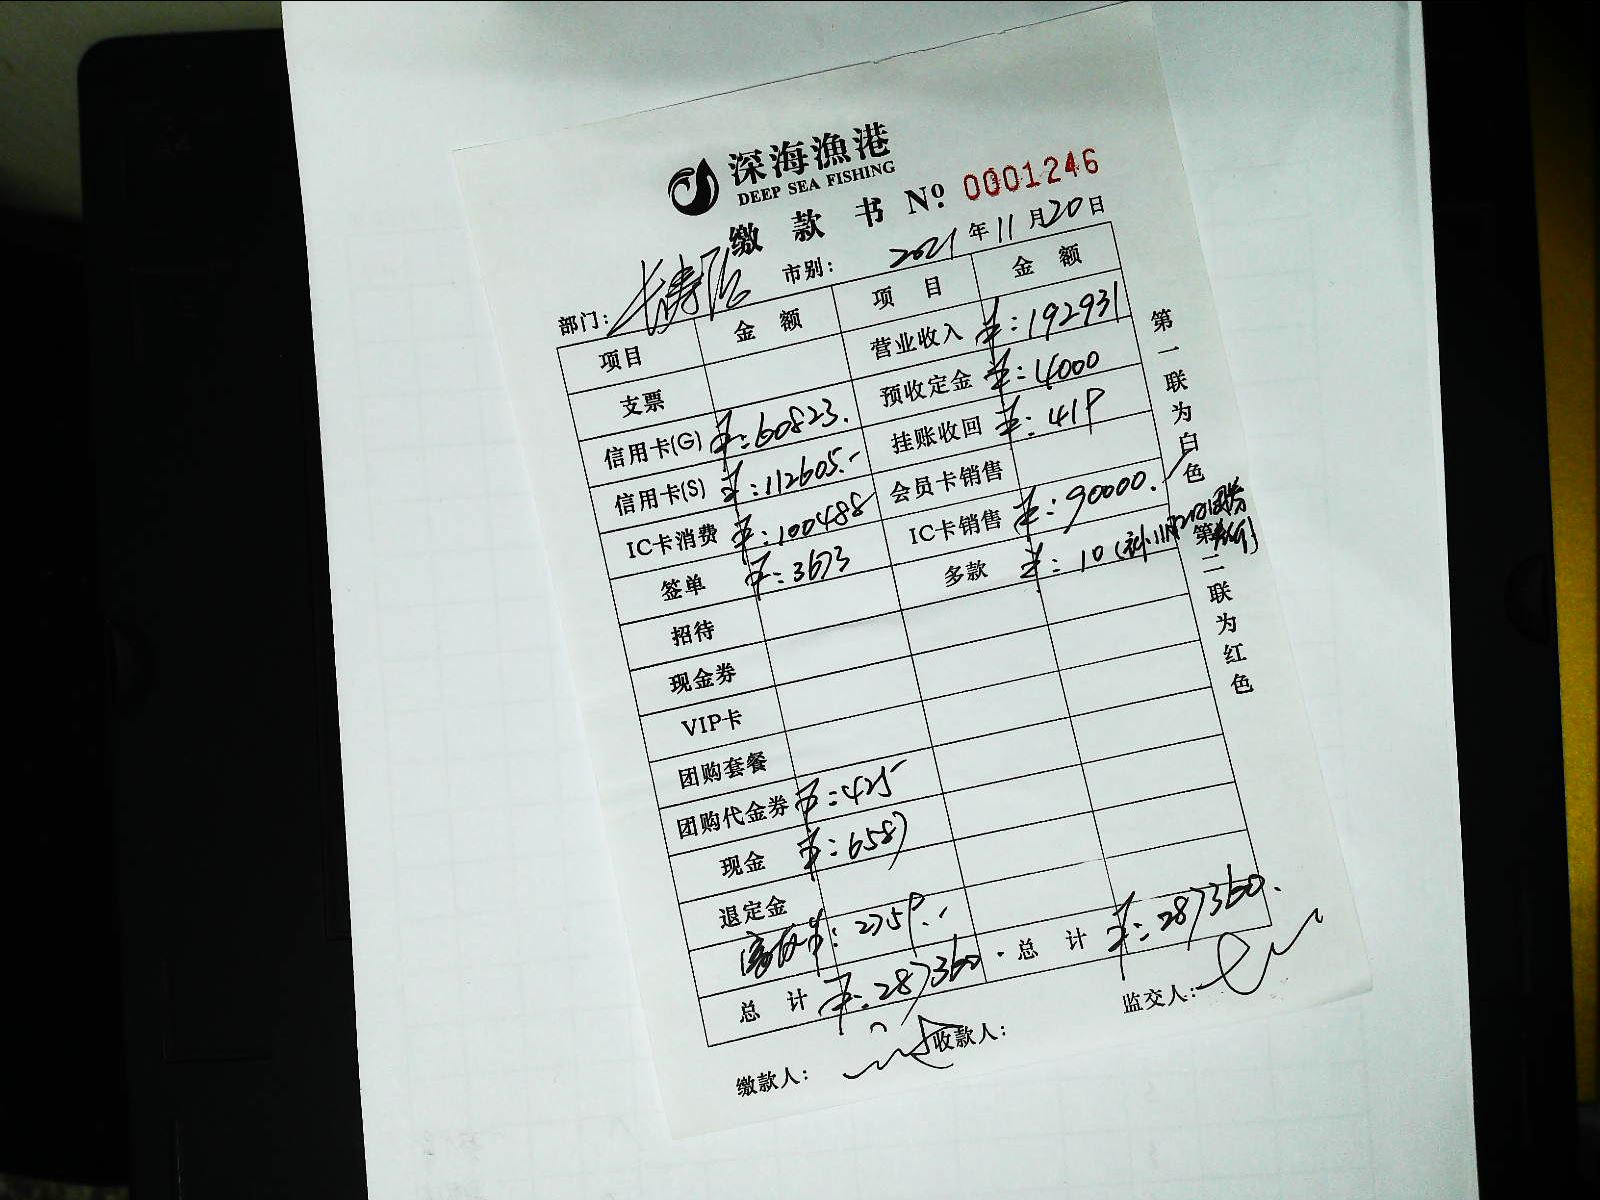 深海漁港
DEEP SEA FISHING
缴款书 Nº 0001246
部门： 市别： 2021年11月20日
项目 金额 项目 金额
支票 营业收入 ¥:192931
信用卡(G) ¥:60823. 预收定金 ¥:4000
信用卡(S) ¥:112605.- 挂账收回 ¥:419
IC卡消费 ¥:100488 会员卡销售
签单 ¥:3673 IC卡销售 ¥:90000.
招待 多款 ¥:10
现金券
VIP卡
团购套餐
团购代金券 ¥:425-
现金 ¥:6587
退定金
¥:2759.-
总计 ¥:287360. 总计 ¥:287360.
缴款人： 收款人： 监交人：
第一联为白色
第二联为红色